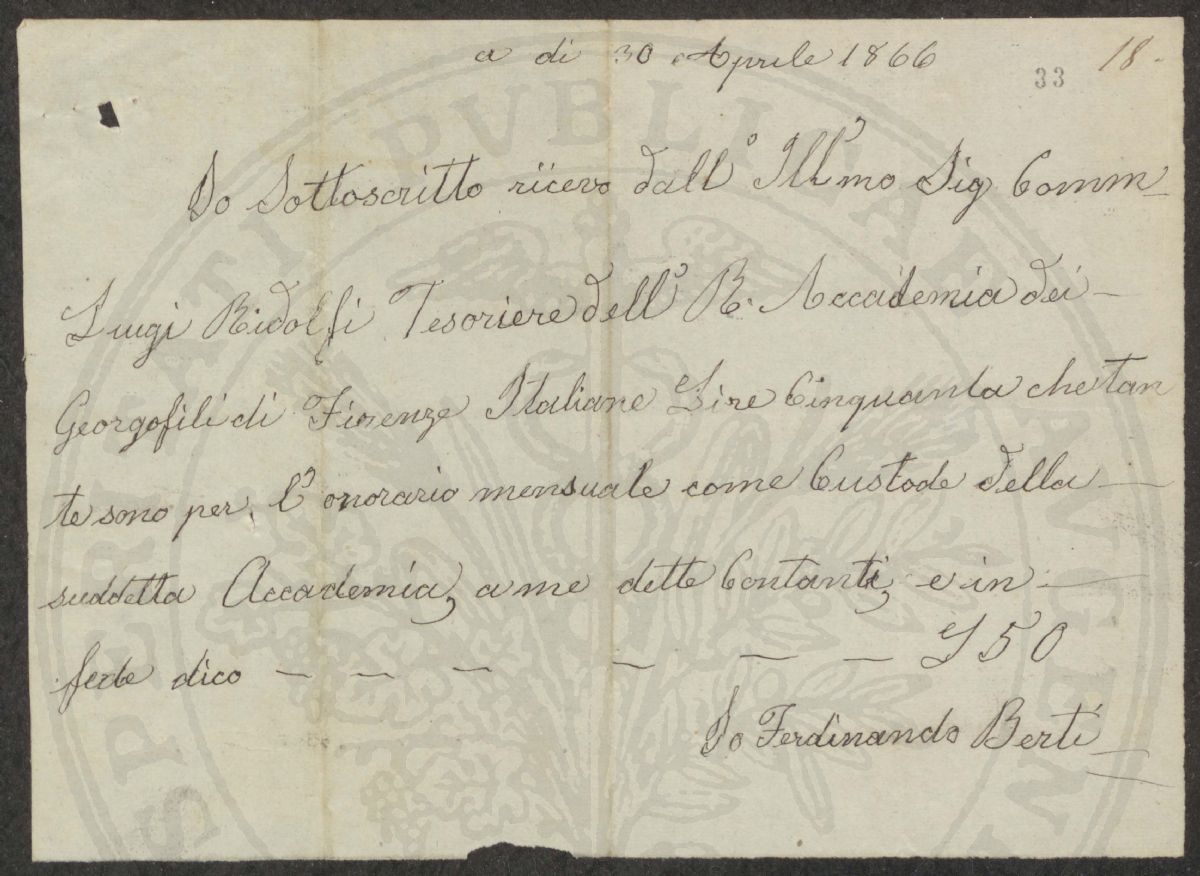 a di 30 Aprile 1866
33
18.
Io Sottoscritto ricevo dall' Ill'mo Sig Comm
Luigi Ridolfi Tesoriere dell' R. Accademia dei
Georgofili di Firenze Italiane Lire Cinquanta che tan
te sono per l' onorario mensuale come Custode della
suddetta Accademia, a me dette Contanti, e in
fede dico — — — — — — £ 50
Io Ferdinando Berti
PVBLICAE
SPERITATI
AVGEN